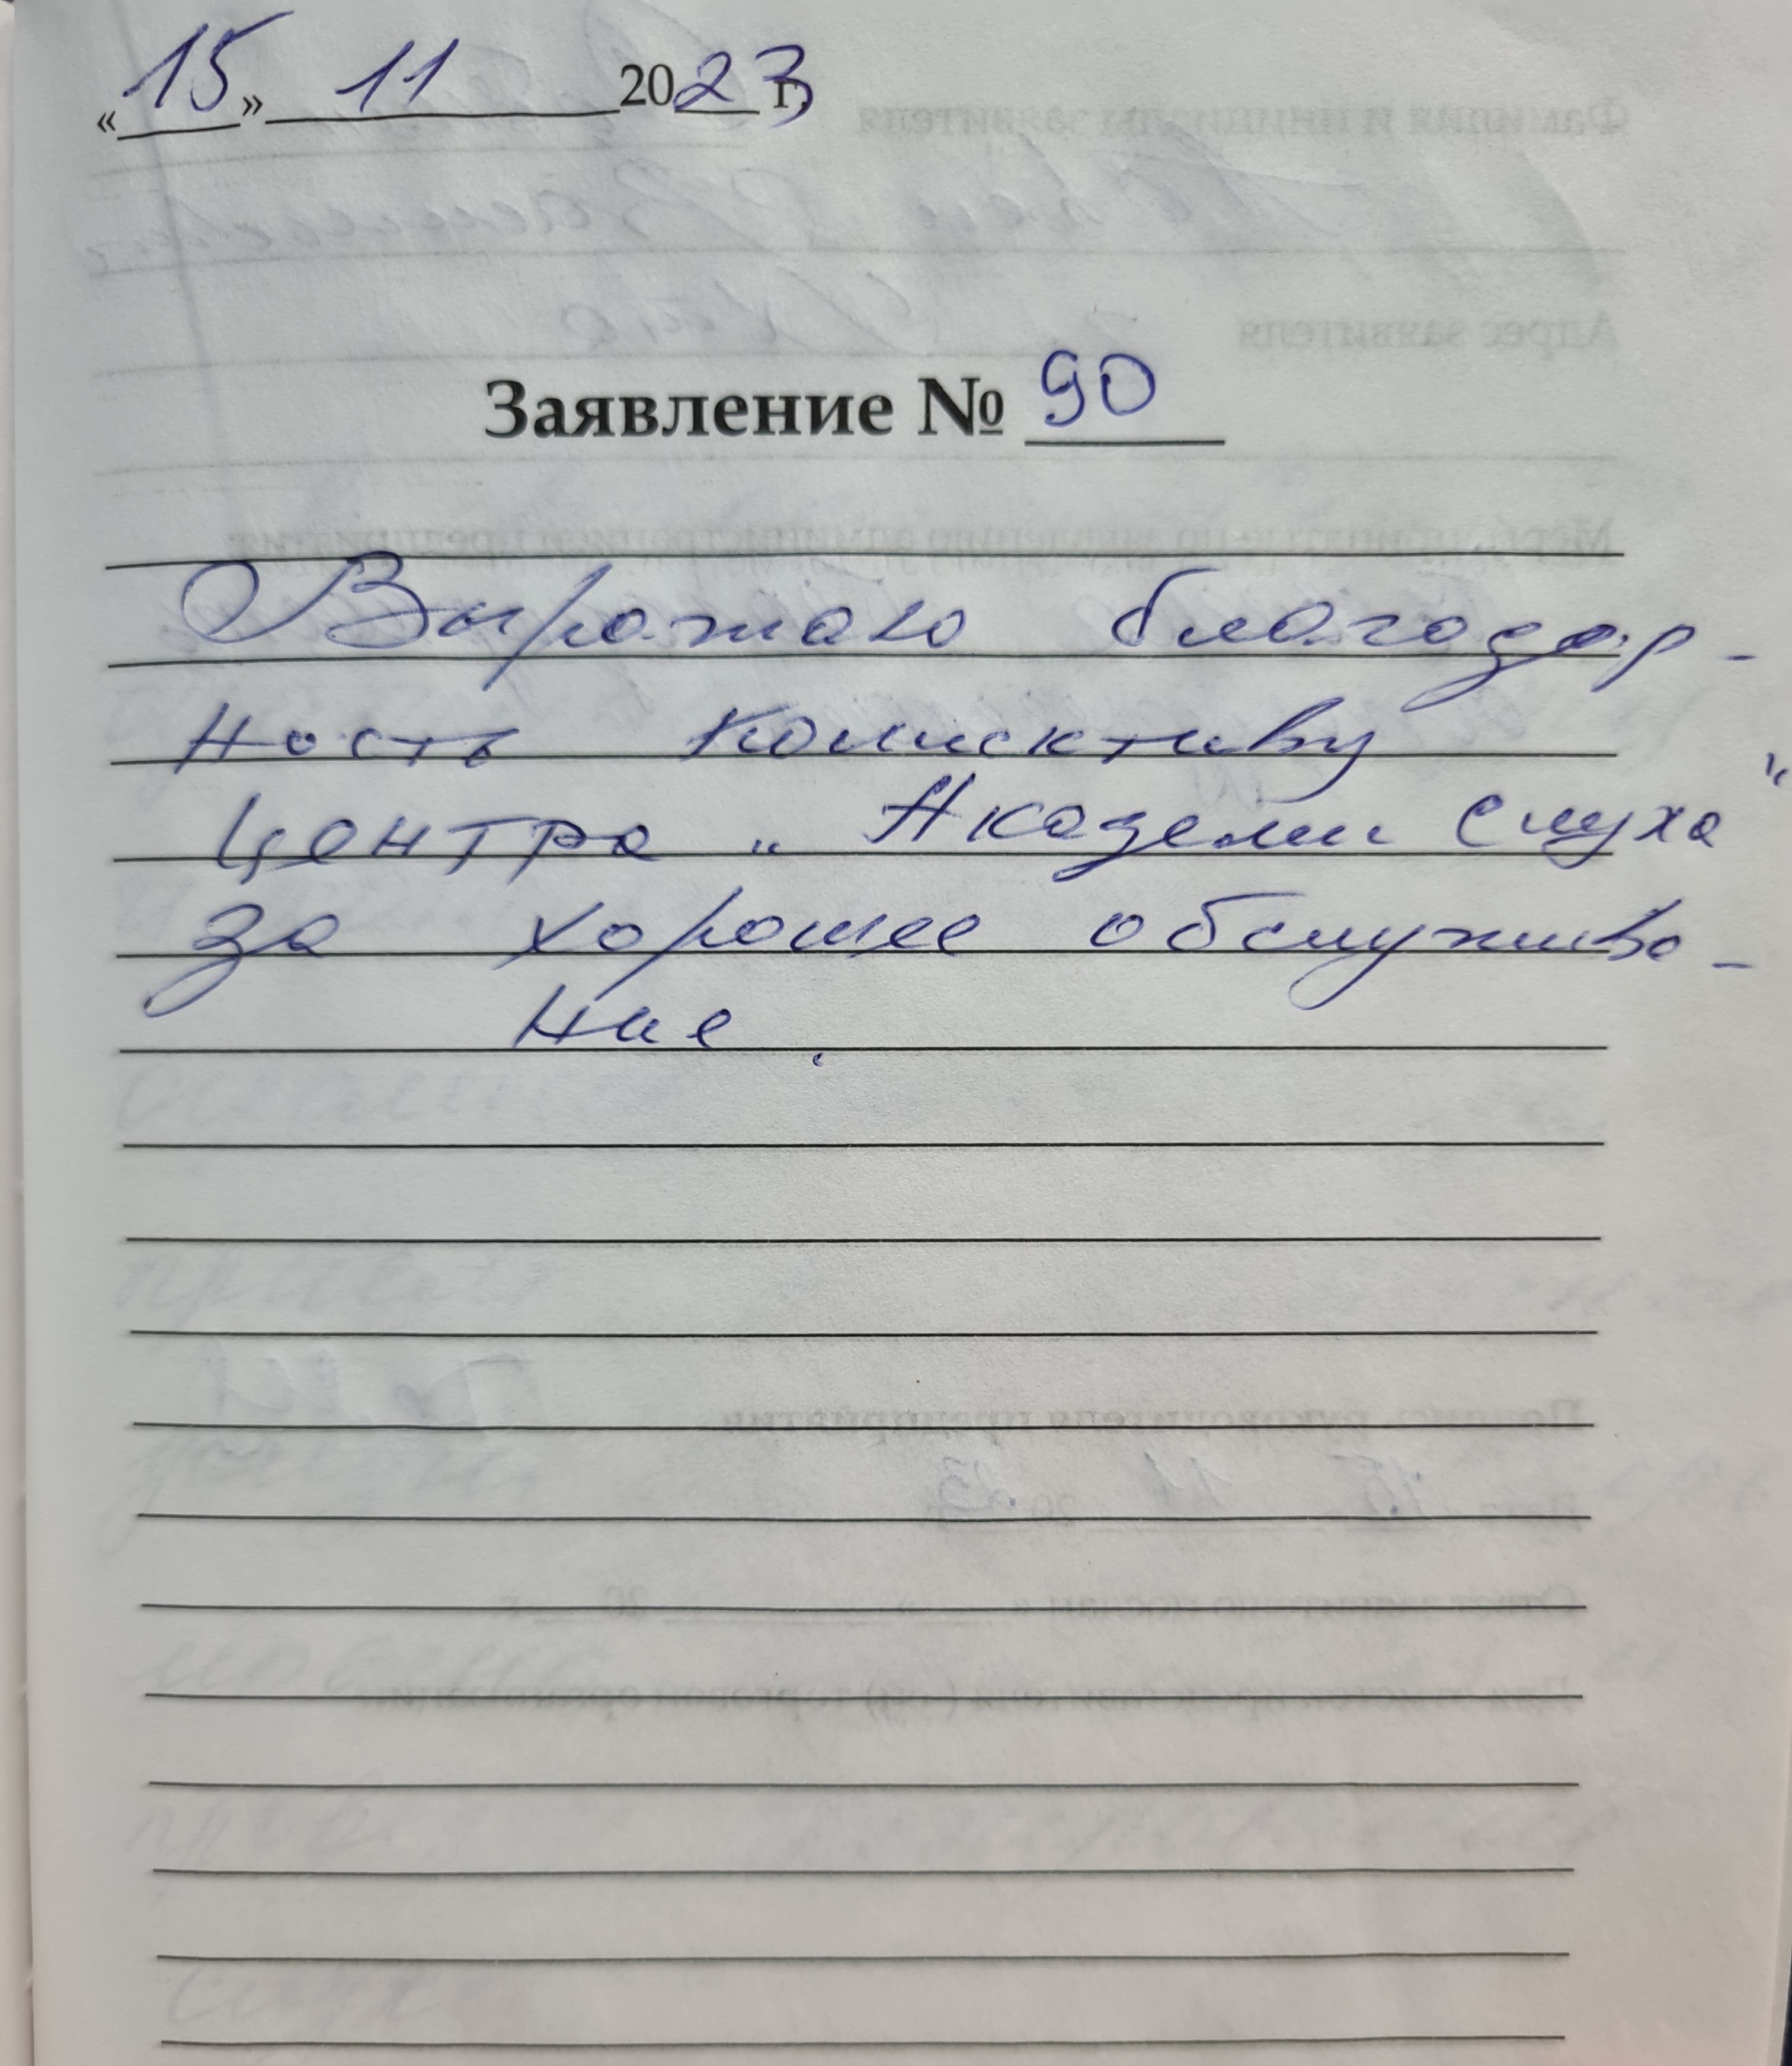 «15» 11 2023 г.
Заявление № 90
Выражаю благодар-
ность коллективу
центра „Академи слуха"
за хорошее обслужива-
ние.